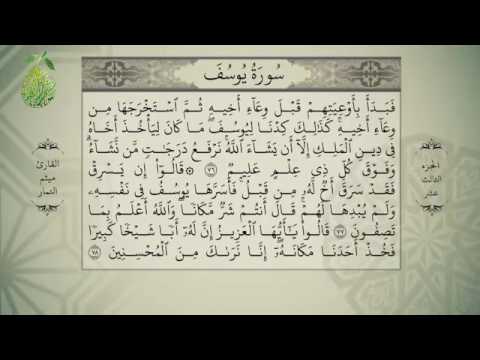 سُورَةُ يُوسُفَ
فَبَدَأَ بِأَوْعِيَتِهِمْ قَبْلَ وِعَآءِ أَخِيهِ ثُمَّ ٱسْتَخْرَجَهَا مِن
وِعَآءِ أَخِيهِ ۚ كَذَٰلِكَ كِدْنَا لِيُوسُفَ ۖ مَا كَانَ لِيَأْخُذَ أَخَاهُ
فِى دِينِ ٱلْمَلِكِ إِلَّآ أَن يَشَآءَ ٱللَّهُ ۚ نَرْفَعُ دَرَجَٰتٍ مَّن نَّشَآءُ ۗ
وَفَوْقَ كُلِّ ذِى عِلْمٍ عَلِيمٌ ٧٦ ۞ قَالُوٓا۟ إِن يَسْرِقْ
فَقَدْ سَرَقَ أَخٌ لَّهُۥ مِن قَبْلُ ۚ فَأَسَرَّهَا يُوسُفُ فِى نَفْسِهِۦ
وَلَمْ يُبْدِهَا لَهُمْ ۚ قَالَ أَنتُمْ شَرٌّ مَّكَانًا ۖ وَٱللَّهُ أَعْلَمُ بِمَا
تَصِفُونَ ٧٧ قَالُوا۟ يَٰٓأَيُّهَا ٱلْعَزِيزُ إِنَّ لَهُۥٓ أَبًا شَيْخًا كَبِيرًا
فَخُذْ أَحَدَنَا مَكَانَهُۥٓ ۖ إِنَّا نَرَىٰكَ مِنَ ٱلْمُحْسِنِينَ ٧٨
الجزء
الثالث
عشر
القارئ
ميثم
التمار